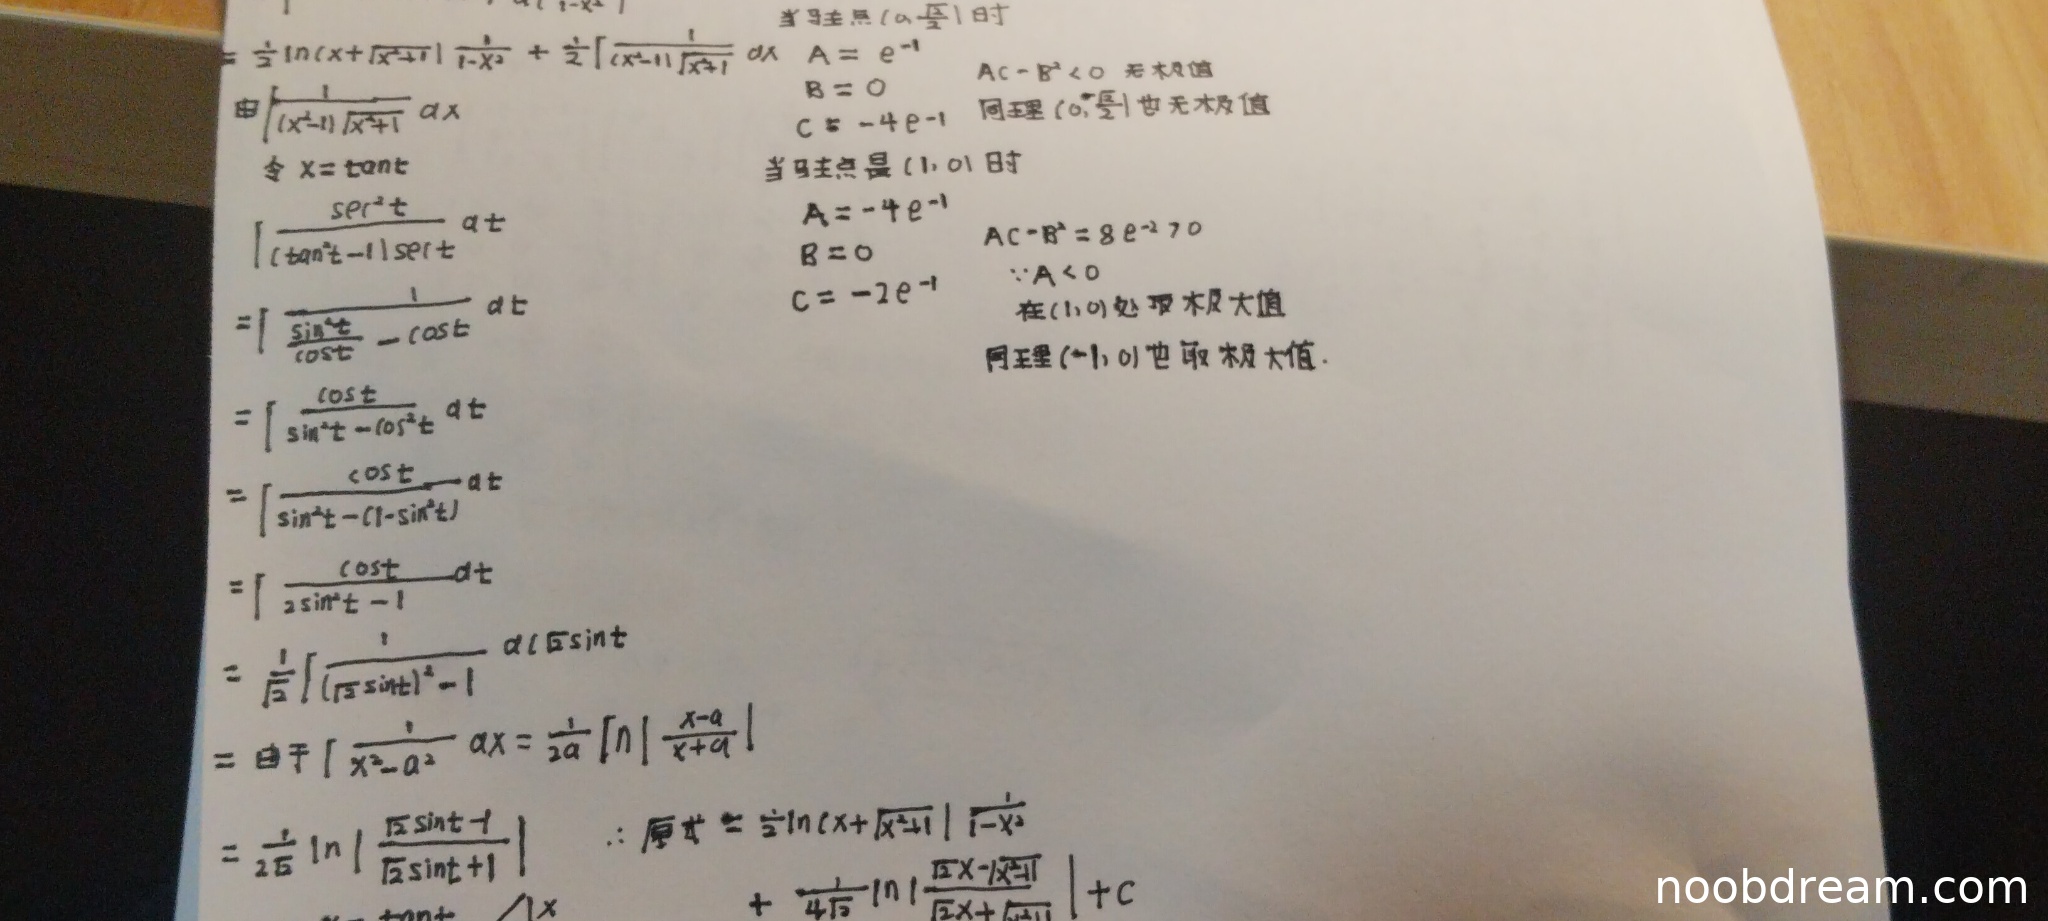 = 1/2 ln(x+√(x²+1)) 1/(1-x²) + 1/2 ∫ 1/((x²-1)√(x²+1)) dx
由∫ 1/((x²-1)√(x²+1)) dx
令 x=tant
∫ sec²t/((tan²t-1)sect) dt
=∫ 1/(sin²t/cost - cost) dt
=∫ cost/(sin²t-cos²t) dt
=∫ cost/(sin²t-(1-sin²t)) dt
=∫ cost/(2sin²t-1) dt
= 1/√2 ∫ 1/((√2sint)²-1) d(√2sint
= 由于∫ 1/(x²-a²) dx = 1/2a ln| (x-a)/(x+a) |
= 1/2√2 ln| (√2sint-1)/(√2sint+1) |
tant
x
∴原式 = 1/2 ln(x+√(x²+1)) 1/(1-x²)
+ 1/4√2 ln| (√2x-√(x²+1))/(√2x+√(x²+1)) | +C
当驻点(0,√2/2)时
A= e⁻¹
B=0
C=-4e⁻¹
AC-B²<0 无极值
同理(0,-√2/2)也无极值
当驻点是(1,0)时
A=-4e⁻¹
B=0
C=-2e⁻¹
AC-B²=8e⁻²>0
∵A<0
在(1,0)处取极大值
同理(-1,0)也取极大值.
noobdream.com